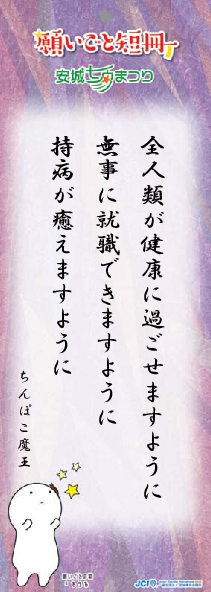 願いごと短冊
安城七夕まつり
全人類が健康に過ごせますように
無事に就職できますように
持病が癒えますように
ちんぽこ魔王
願いごと短冊
JCI